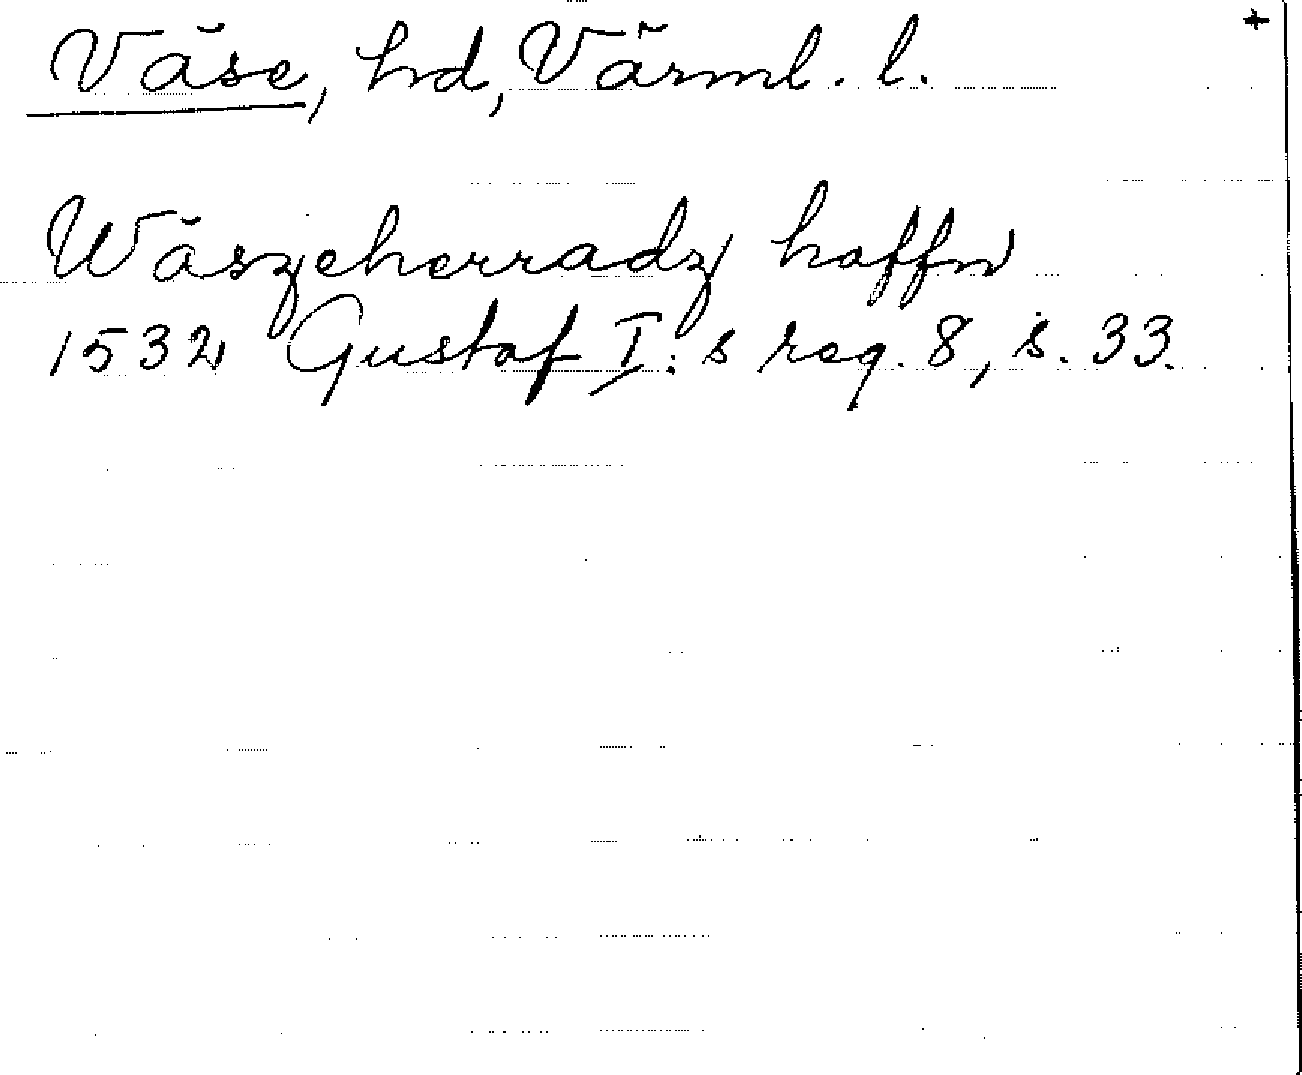 Väse, hd, Värml. l. +
Wäszeherradz haffn
1532 Gustaf I:s reg. 8, s. 33.